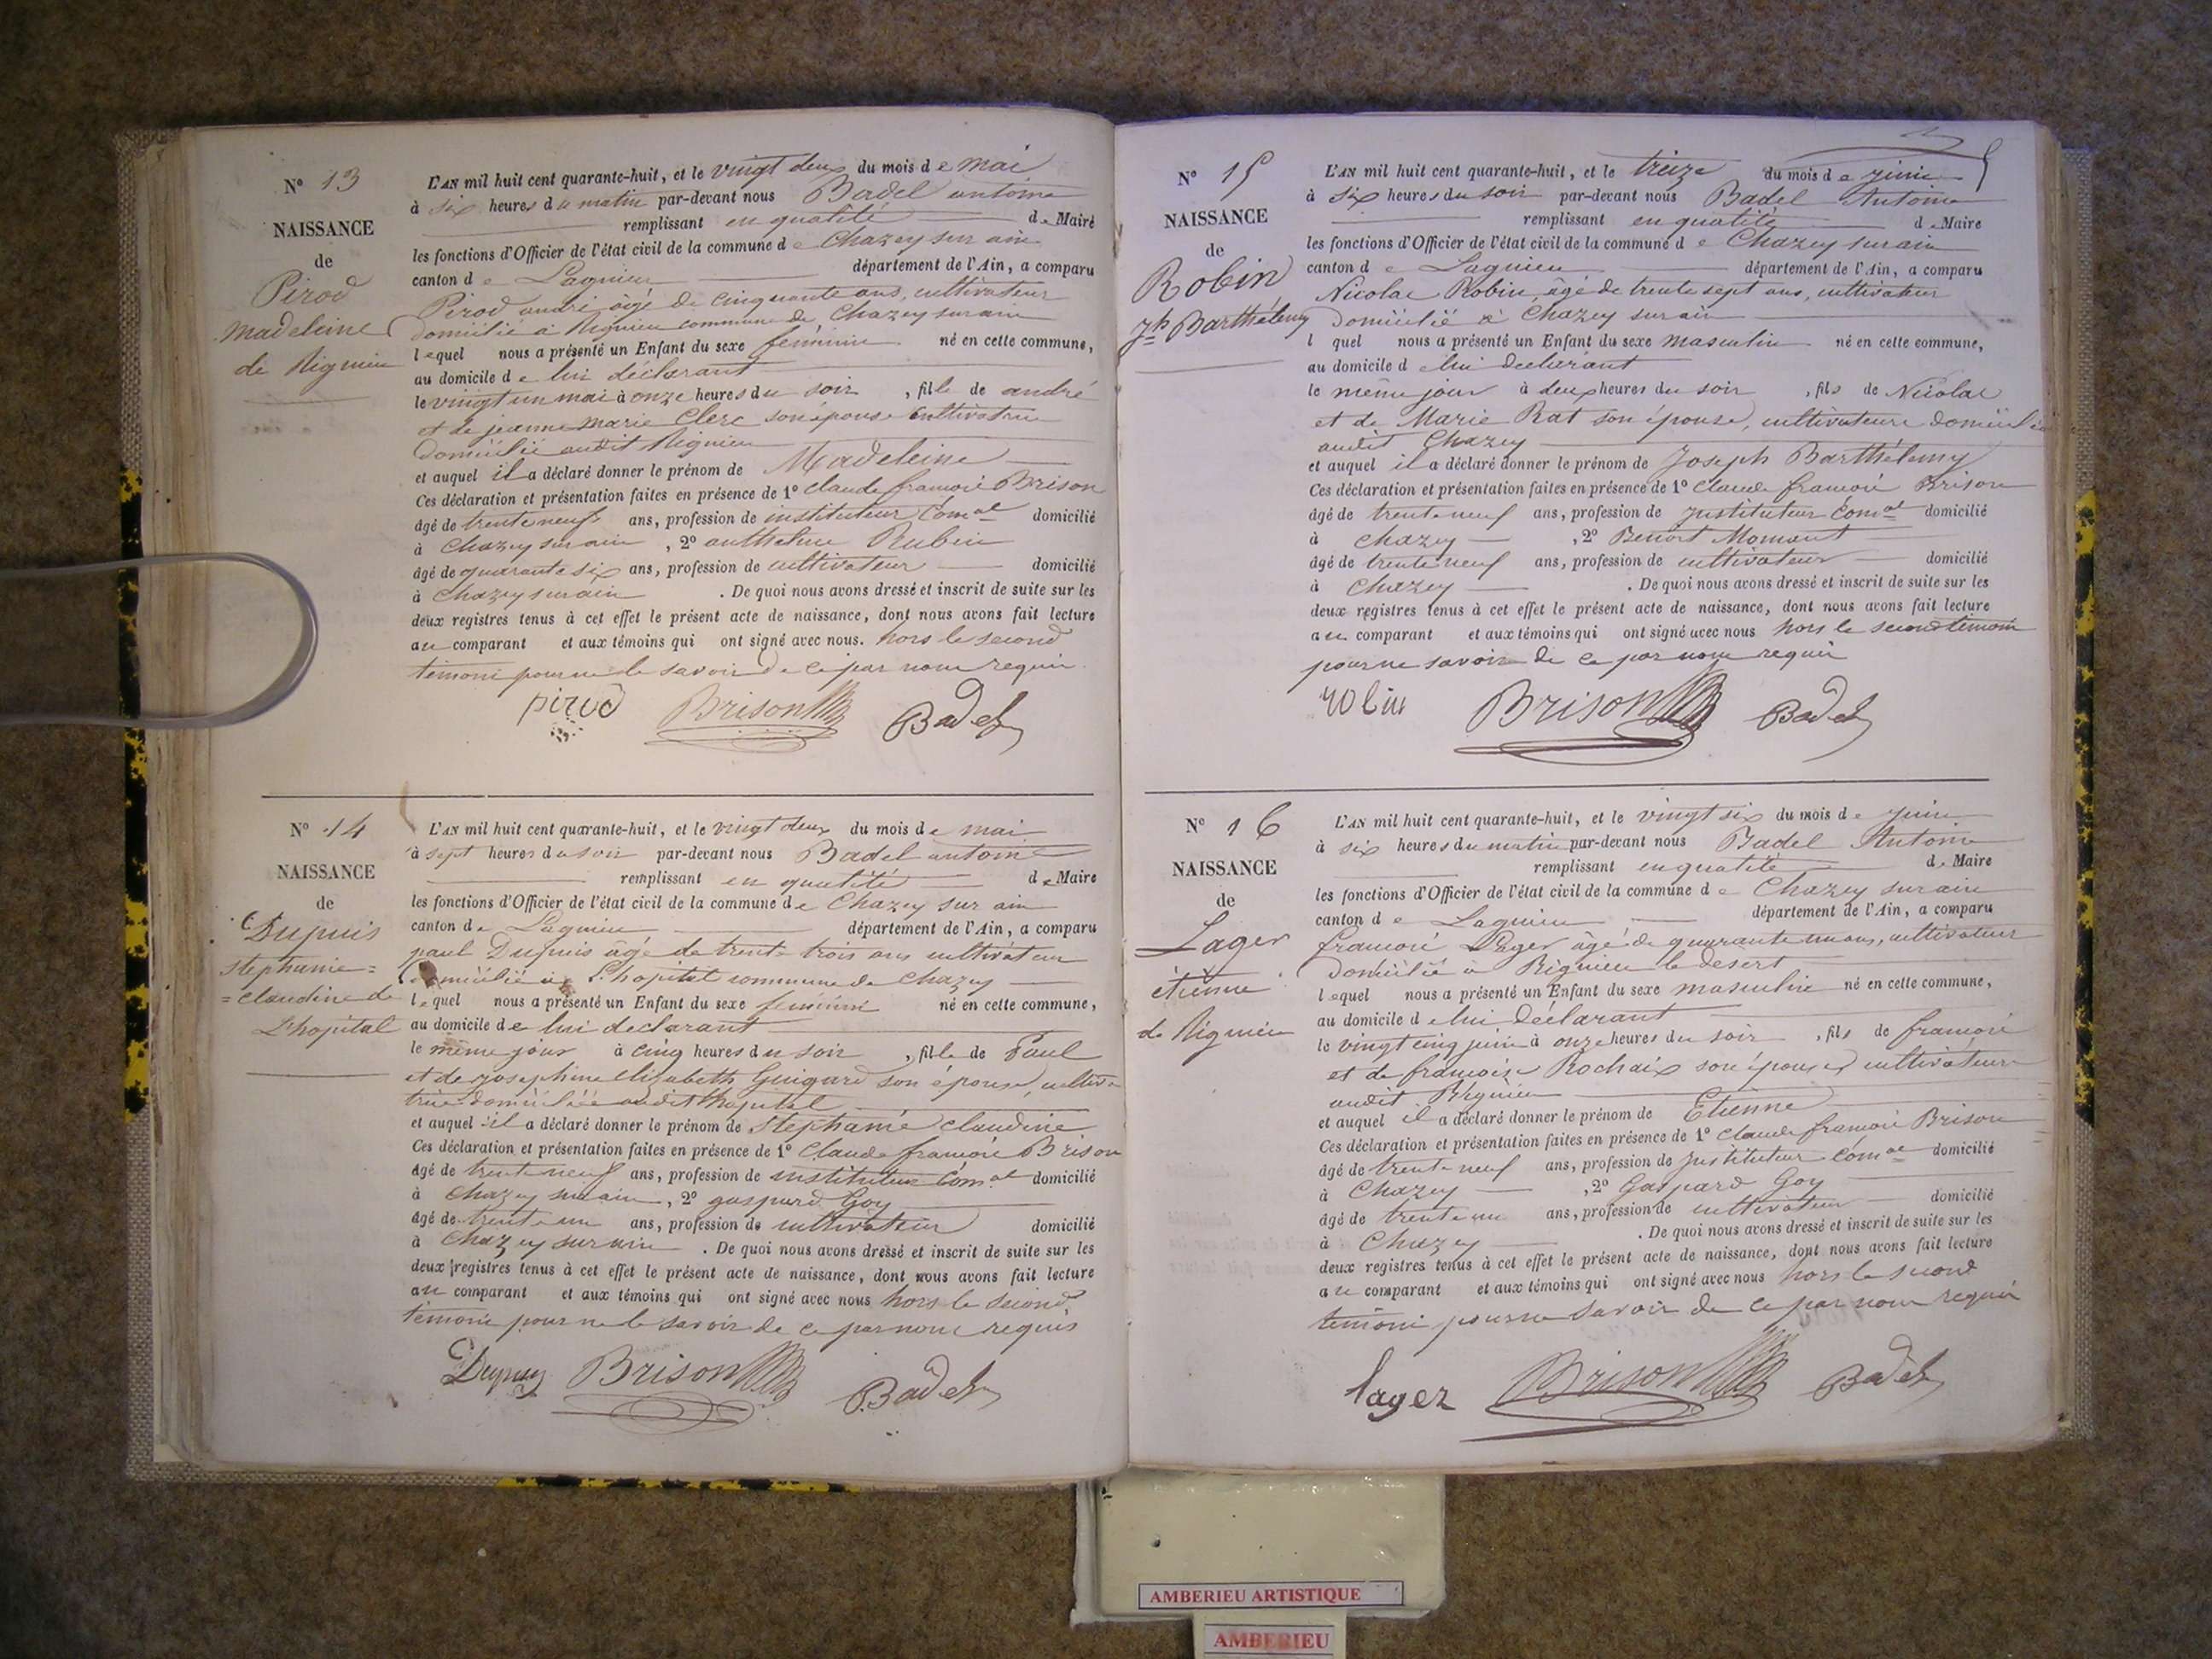 N° 13
NAISSANCE
de
Pirod
Madeleine
de Rignieu
L'AN mil huit cent quarante-huit, et le vingt deux du mois de mai
à six heures du matin par-devant nous Badel antoine
remplissant en qualité de Maire
les fonctions d'Officier de l'état civil de la commune de Chazey sur ain
canton de Lagnieu département de l'Ain, a comparu
Pirod andré âgé de cinquante ans, cultivateur
domicilié à Rignieu commune de Chazey sur ain
lequel nous a présenté un Enfant du sexe féminin né en cette commune,
au domicile de lui déclarant
le vingt un mai à onze heures du soir, fille de andré
et de jeanne marie Clerc son épouse cultivatrice
domicilié audit Rignieu
et auquel il a déclaré donner le prénom de Madeleine
Ces déclaration et présentation faites en présence de 1° Claude françois Brison
âgé de trente neuf ans, profession de instituteur Com.al domicilié
à Chazey sur ain, 2° anthelme Rubin
âgé de quarante six ans, profession de cultivateur domicilié
à Chazey sur ain. De quoi nous avons dressé et inscrit de suite sur les
deux registres tenus à cet effet le présent acte de naissance, dont nous avons fait lecture
au comparant et aux témoins qui ont signé avec nous. hors le second
témoin pour ne le savoir de ce par nous requis
pirod Brison Badel
N° 14
NAISSANCE
de
Dupuis
stephanie=
=claudine de
L'hopital
L'AN mil huit cent quarante-huit, et le vingt deux du mois de mai
à sept heures du soir par-devant nous Badel antoine
remplissant en qualité de Maire
les fonctions d'Officier de l'état civil de la commune de Chazey sur ain
canton de Lagnieu département de l'Ain, a comparu
paul Dupuis âgé de trente trois ans cultivateur
domicilié à L'hopital commune de Chazey
lequel nous a présenté un Enfant du sexe féminin né en cette commune,
au domicile de lui declarant
le même jour à cinq heures du soir, fille de Paul
et de josephine elizabeth Guigard son épouse, cultiva
trice domiciliée audit L'hopital
et auquel il a déclaré donner le prénom de stephanie claudine
Ces déclaration et présentation faites en présence de 1° Claude françois Brison
âgé de trente neuf ans, profession de instituteur Com.al domicilié
à Chazey sur ain, 2° gaspard Goy
âgé de trente un ans, profession de cultivateur domicilié
à Chazey sur ain. De quoi nous avons dressé et inscrit de suite sur les
deux registres tenus à cet effet le présent acte de naissance, dont nous avons fait lecture
au comparant et aux témoins qui ont signé avec nous hors le second
témoin pour ne le savoir de ce par nous requis
Dupuy Brison Badel
N° 15
NAISSANCE
de
Robin
Jh Barthélemy
L'AN mil huit cent quarante-huit, et le treize du mois de juin
à six heures du soir par-devant nous Badel Antoine
remplissant en qualité de Maire
les fonctions d'Officier de l'état civil de la commune de Chazey sur ain
canton de Lagnieu département de l'Ain, a comparu
Nicolas Robin, âgé de trente sept ans, cultivateur
domicilié à Chazey sur ain
l quel nous a présenté un Enfant du sexe masculin né en cette commune,
au domicile de lui declarant
le même jour à deux heures du soir, fils de Nicolas
et de Marie Rat son épouse, cultivateurs domiciliés
audit Chazey
et auquel il a déclaré donner le prénom de Joseph Barthélemy
Ces déclaration et présentation faites en présence de 1° Claude françois Brison
âgé de trente neuf ans, profession de Instituteur Com.al domicilié
à Chazey, 2° Benoit Momant
âgé de trente neuf ans, profession de cultivateur domicilié
à Chazey. De quoi nous avons dressé et inscrit de suite sur les
deux registres tenus à cet effet le présent acte de naissance, dont nous avons fait lecture
au comparant et aux témoins qui ont signé avec nous hors le second témoin
pour ne savoir de ce par nous requis
robin Brison Badel
N° 16
NAISSANCE
de
Lager
étienne
de Rignieu
L'AN mil huit cent quarante-huit, et le vingt six du mois de juin
à six heures du matin par-devant nous Badel Antoine
remplissant en qualité de Maire
les fonctions d'Officier de l'état civil de la commune de Chazey sur ain
canton de Lagnieu département de l'Ain, a comparu
françois Lager âgé de quarante un ans, cultivateur
domicilié à Rignieu le desert
lequel nous a présenté un Enfant du sexe masculin né en cette commune,
au domicile de lui déclarant
le vingt cinq juin à onze heures du soir, fils de françois
et de françoise Rochaix son épouse, cultivateurs
audit Rignieu
et auquel il a déclaré donner le prénom de Etienne
Ces déclaration et présentation faites en présence de 1° Claude françois Brison
âgé de trente neuf ans, profession de Instituteur Com.al domicilié
à Chazey, 2° Gaspard Goy
âgé de trente un ans, profession de cultivateur domicilié
à Chazey. De quoi nous avons dressé et inscrit de suite sur les
deux registres tenus à cet effet le présent acte de naissance, dont nous avons fait lecture
au comparant et aux témoins qui ont signé avec nous hors le second
témoin pour ne savoir de ce par nous requis
lager Brison Badel
AMBERIEU ARTISTIQUE
AMBERIEU